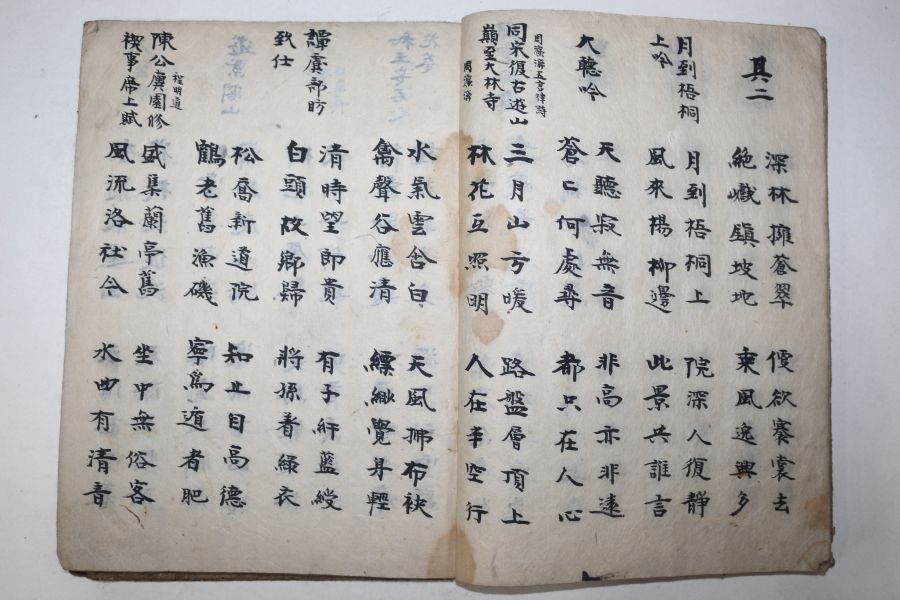 其二
深林擁蒼翠 優欲褰裳去
絶巘鎭坡地 乘風逸興多
月到梧桐
上吟
月到梧桐上 院深人復靜
風來楊柳邊 此景共誰言
大聽吟
天聽寂無音 非高亦非遠
蒼〻何處尋 都只在人心
周濂溪五言律詩
同宋復古遊山
巓至大林寺 周濂溪
三月山方暖 路盤層頂上
林花互照明 人在半空行
水氣雲含白 天風拂布袂
禽聲谷應清 縹緲覺身輕
譚虞部昉
致仕
清時望郎貴 有子紆藍綬
白頭故鄉歸 將孫着綵衣
松喬新道院 知止自高德
鶴老舊漁磯 寧爲遁者肥
陳公廙園修
禊事席上賦 程明道
盛集蘭亭舊 坐中無俗客
風流洛社今 水曲有清音